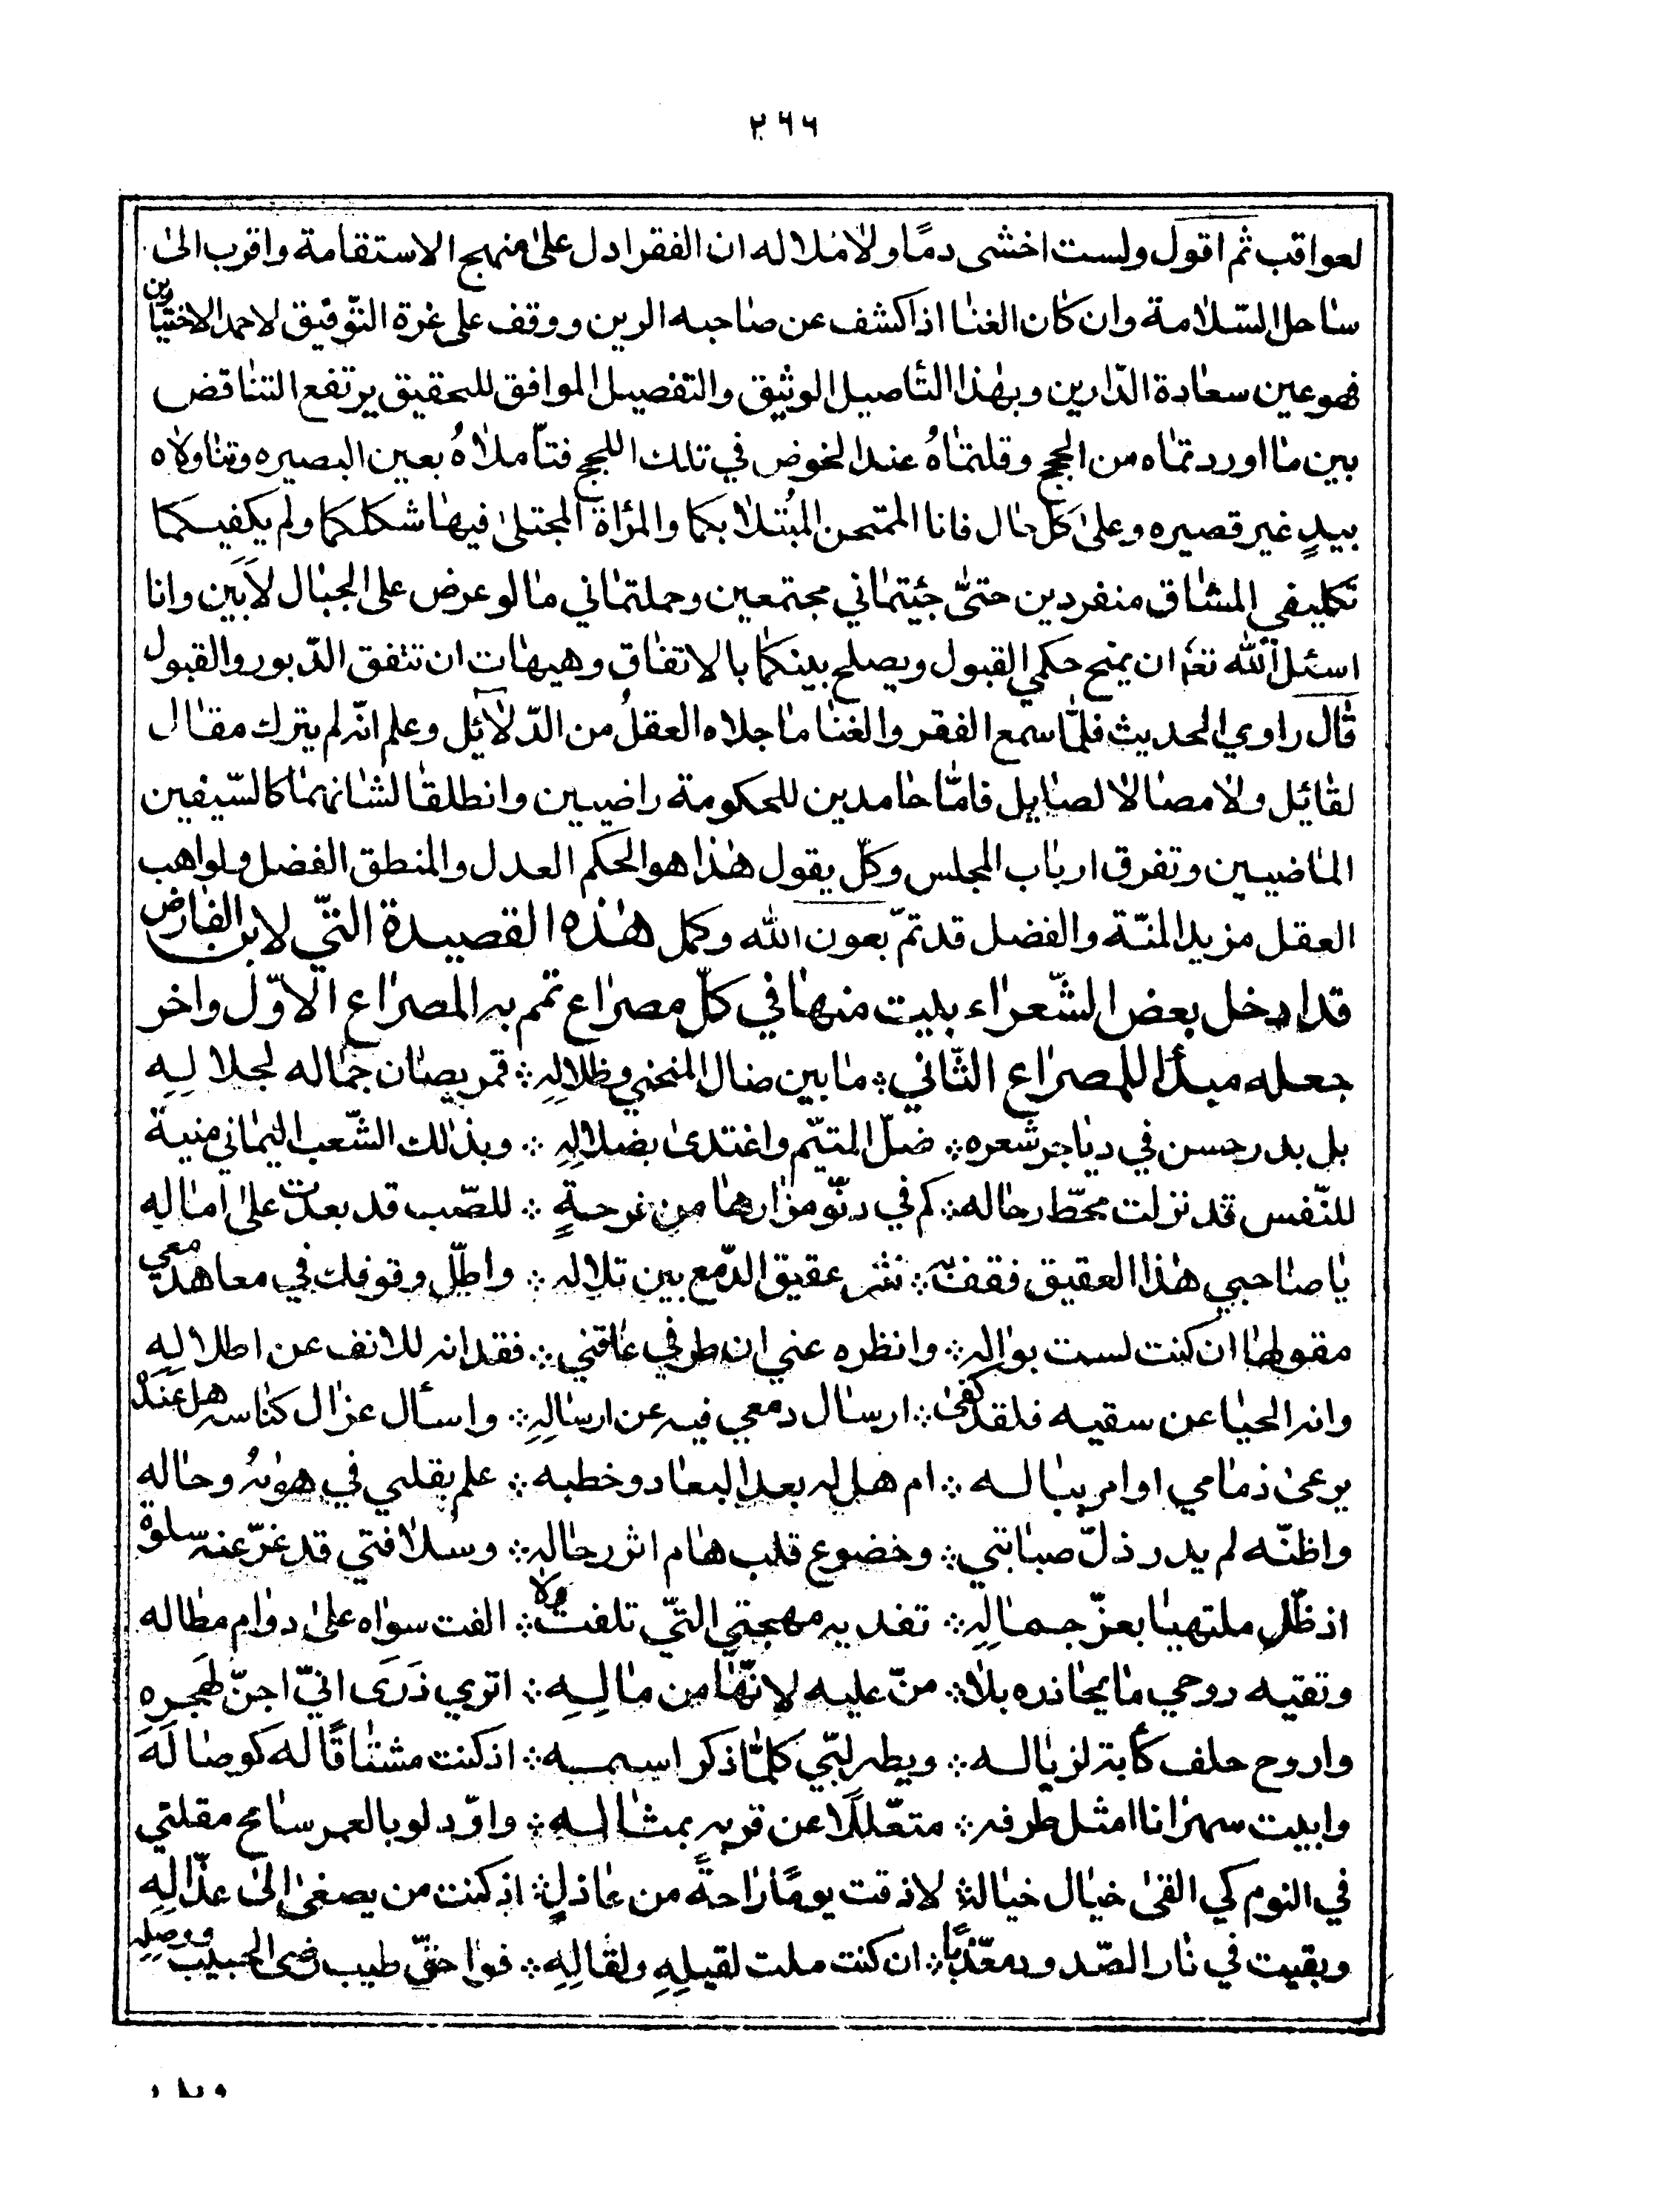 ٢٦٦
لعواقب ثم اقول ولست اخشى دمًا ولا ملاله ان الفقر ادل على منهج الاستقامة واقرب الى
ساحل السّلامة وان كان الغنا اذا كشف عن صاحبه الرين ووقف على غرة التّوفيق لاحمد الاختيارين
فهو عين سعادة الدّارين وبهذا التأصيل الوثيق والتفصيل الموافق للتحقيق يرتفع التناقض
بين ما اوردتماه من الحجج وقلتماهُ عند الخوض في تلك اللجج فتأملاهُ بعين البصيره وتناولاه
بيدٍ غير قصيره وعلى كلّ حال فانا الممتحن المبُتلا بكما والمرأة المجتلى فيها شكلكما ولم يكفيكما
تكليفي المشاق منفردين حتىّ جئيتماني مجتمعين وحملتماني ما لو عرض على الجبال لأبَين وانا
اسئل الله تعه ان يمنح حكمي القبول ويصلح بينكما بالاتفاق وهيهات ان تتفق الدّبور والقبول
قال راوي الحديث فلمّا سمع الفقر والغنا ما جلاه العقلُ من الدّلائل وعلم انّه لم يترك مقال
لقائل ولا مصالا لصايل قامّا حامدين للحكومة راضيين وانطلقا لشانهما كالسّيفين
الماضيين وتفرق ارباب المجلس وكلّ يقول هذا هو الحكم العدل والمنطق الفضل ولواهب
العقل مزيد المنّة والفضل قد تمّ بعون الله وكمل هذه القصيدة التّي لابن الفارض
قد ادخل بعض الشّعراء بليت منها في كلّ مصراع تمم به المصراع الاوّل واخر
جعله مبدأ للمصراع الثّاني ؞ ما بين ضال المنحني وظلالِهِ ؞ قمر يصان جماله لجلالِهِ
بل بدر حسن في دياجر شعره ؞ ضلّ المتيّم واغتدى بضلالِهِ ؞ وبذلك الشّعب اليماني منية
للنّفس قد نزلت محطّ رحاله ؞ كم في دنّو مزارها من غرحةٍ ؞ للصّب قد بعدت على اماله
يا صاحبي هذا العقيق فقف به ؞ نثر عقيق الدّمع بين تلاله ؞ واطلّ وقوفك في معاهد معي
مقولها ان كنت لست بواله ؞ وانظره عني ان طرفي عاقني ؞ فقدانه للانف عن اطلالِهِ
وانه الحيا عن سقيه فلقد كفى ؞ ارسال دمعي فيه عن ارسالِهِ ؞ واسأل غزال كناسه هل عنده
يرعى ذمامي او امر بباله ؞ ام هل له بعد البعاد وخطبه ؞ علم بقلبي في هواه وحاله
واظنّه لم يدر ذلّ صبابتي ؞ وخضوع قلب هام اثر رحاله ؞ وسُلافتي قد غرّ عنه سلوة
اذ ظلّ ملتهيا بعزّ جمالِهِ ؞ تفديه مهجتي التّي تلفت ولا ؞ الفت سواه على دوام مطاله
وتقيه روحي ما يحاذره بلا ؞ منّ عليه لانّها من مالِهِ ؞ اترى ذَرَى انّي احنّ لهجره
واروح حلف كأبة لزياله ؞ ويطر لبّي كلمّا ذكر اسمه ؞ اذ كنت مشتاقًا له كوصاله
وابيت سهرانا امثل طرفه ؞ متعّللًا عن قربه بمثاله ؞ واوّد لو بالعمر سامح مقلتي
في النوم كي القى خيال خياله ؞ لاذقت يومًا راحةً من عاذلٍ ؞ اذ كنت من يصغى الى عذّالِهِ
وبقيت في نار الصّدود معّذبًا ؞ ان كنت ملت لقيلِهِ ولقالِهِ ؞ فوا حقّ طيب رضى الحبيب ووصلِهِ